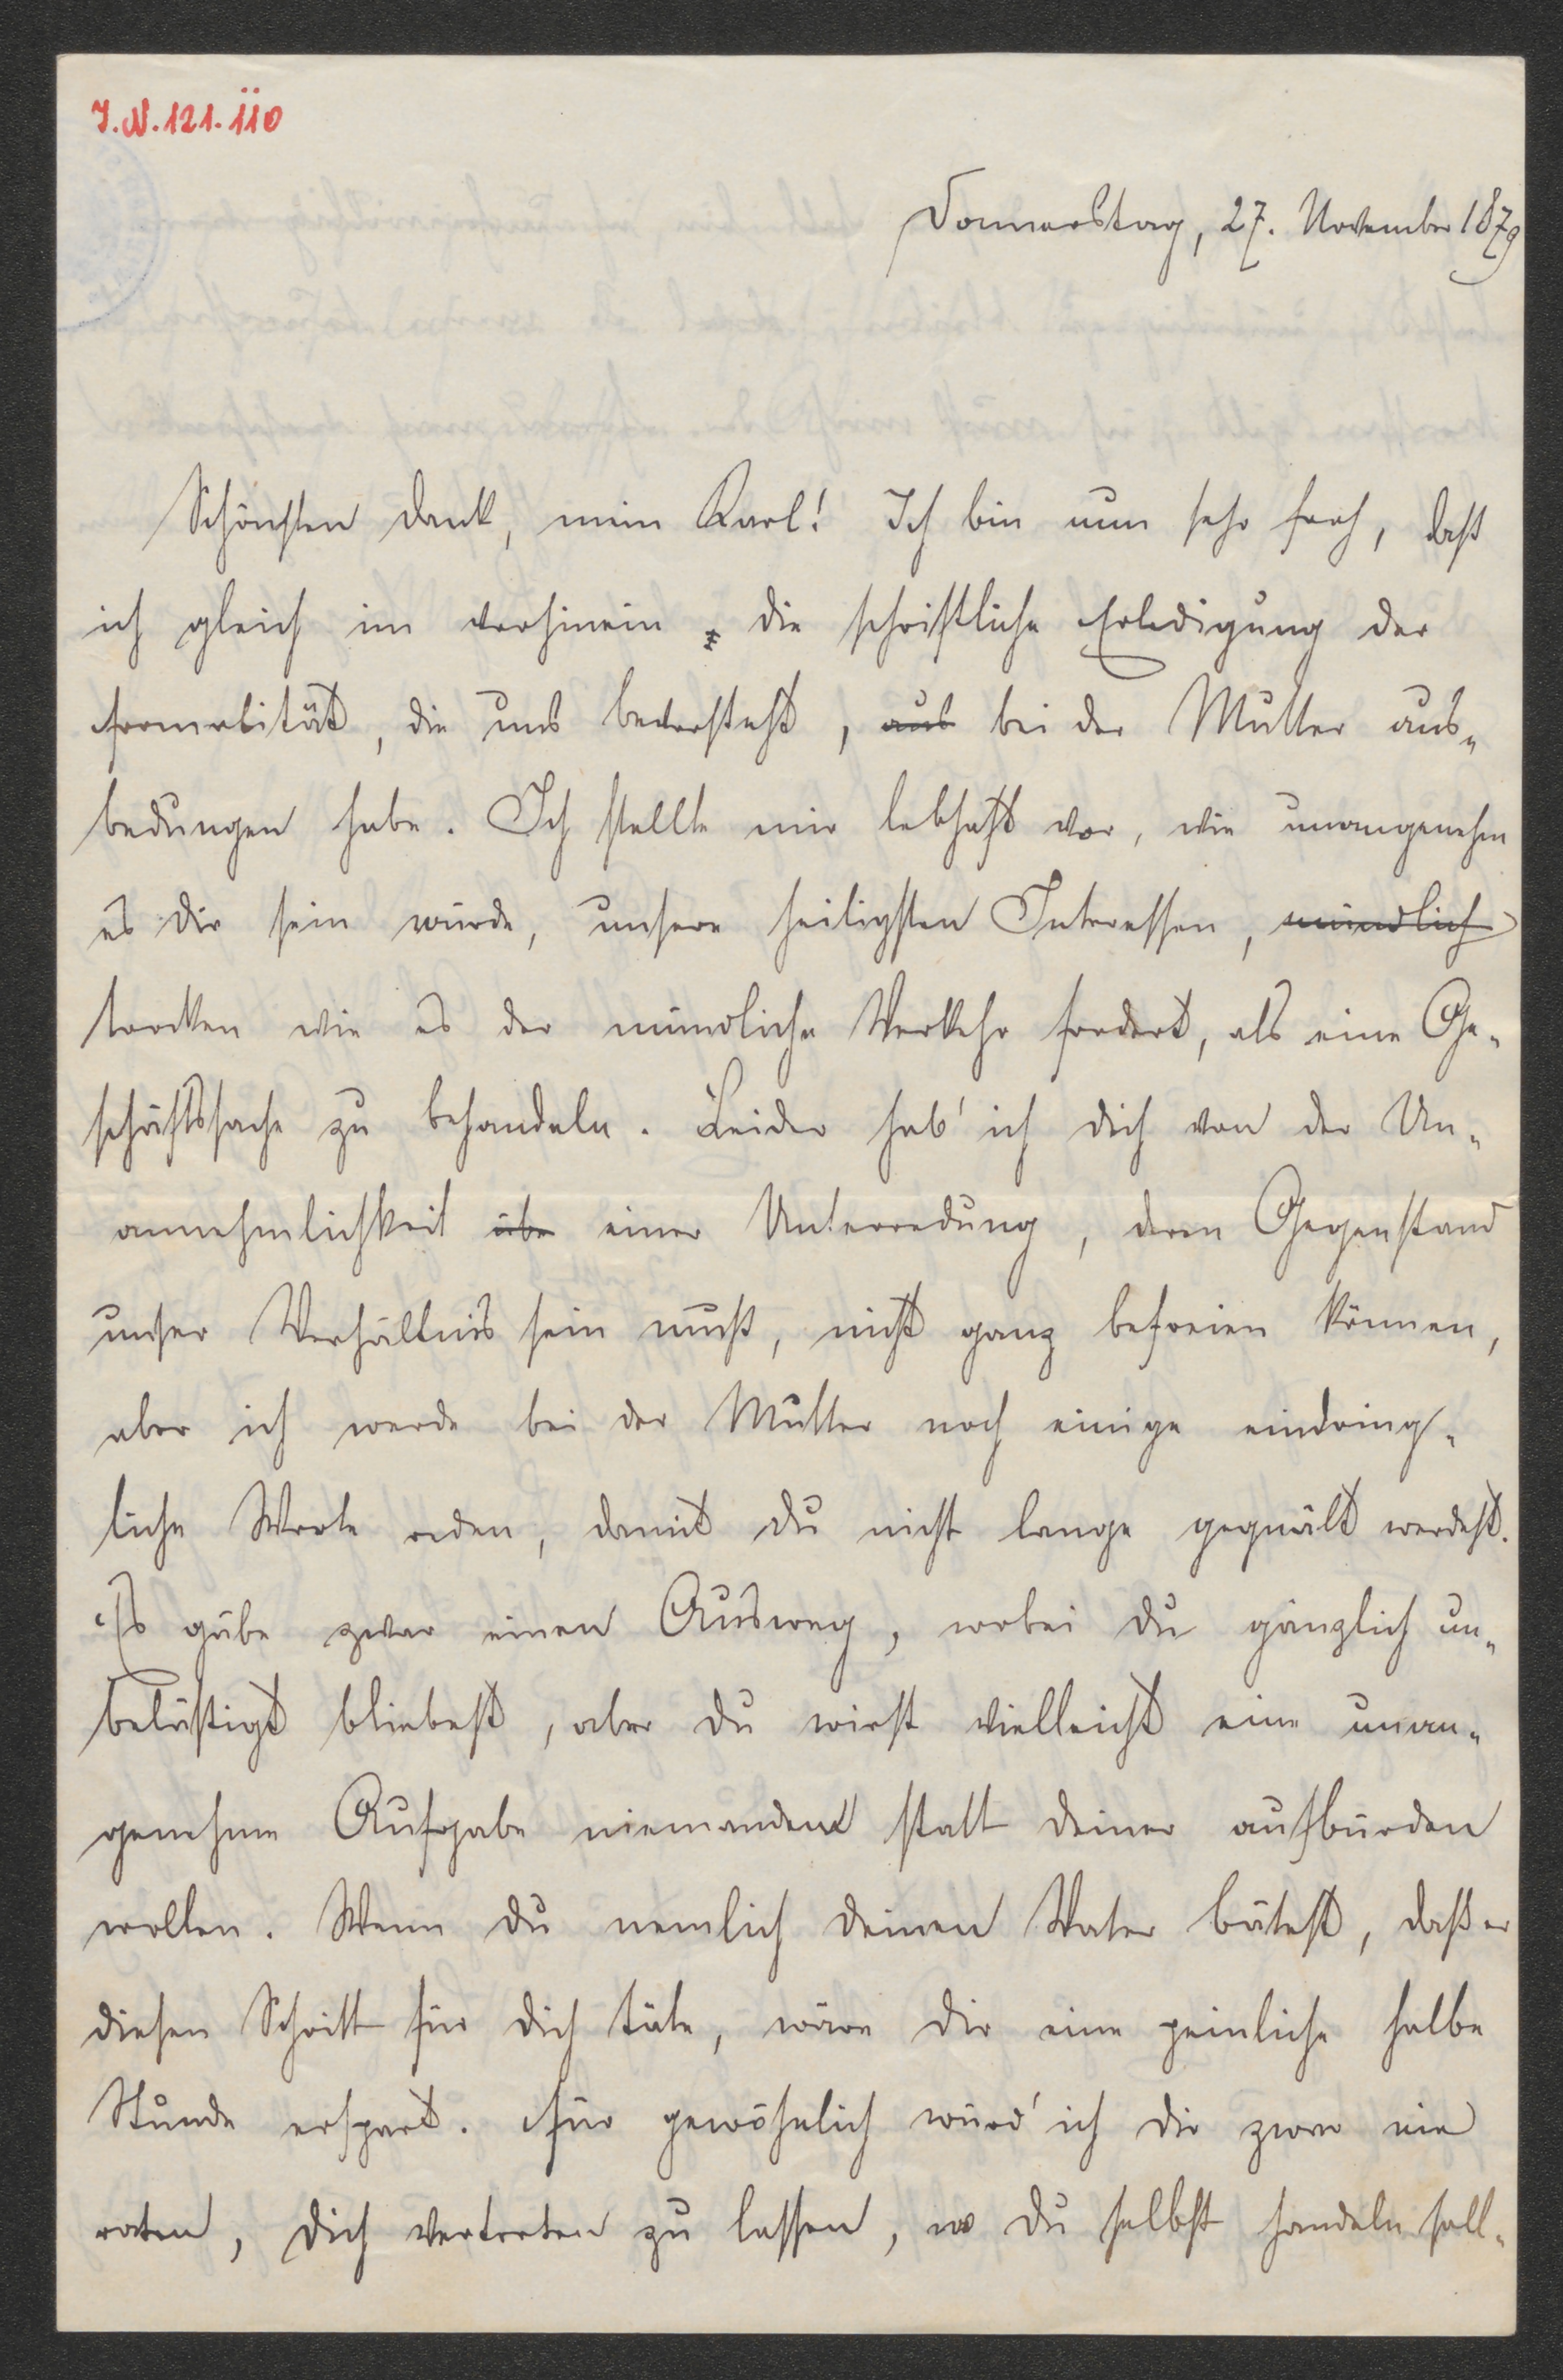 I.N. 121.110
Donnerstag, 27. November 1879
Schönsten Dank, mein Karl! Ich bin nun sehr froh, daß
ich gleich im vorhinein die schriftliche Erledigung der
Formalität, die uns bevorsteht, aus bei der Mutter aus„
bedungen habe. Ich stellte mir lebhaft vor, wie unangenehm
es dir sein würde, unsere heiligsten Interessen, mündlich
trocken wie es der mündliche Verkehr fordert, als eine Ge„
schäftssache zu behandeln. Leider hab' ich dich von der Un„
annehmlichkeit übe einer Unterredung, deren Gegenstand
unser Verhältnis sein muß, nicht ganz befreien können,
aber ich werde bei der Mutter noch einige eindring„
liche Worte reden, damit du nicht lange gequält werdest.
Es gäbe zwar einen Ausweg, wobei du gänzlich un„
belästigt bliebest, aber du wirst vielleicht eine unan„
genehme Aufgabe niemandem statt deiner aufbürden
wollen. Wenn du nemlich deinen Vater bätest, daß er
diesen Schritt für dich täte, wäre dir eine peinliche halbe
Stunde erspart. Für gewöhnlich würd' ich dir zwar nie
raten, dich vertreten zu lassen, wo du selbst handeln soll„